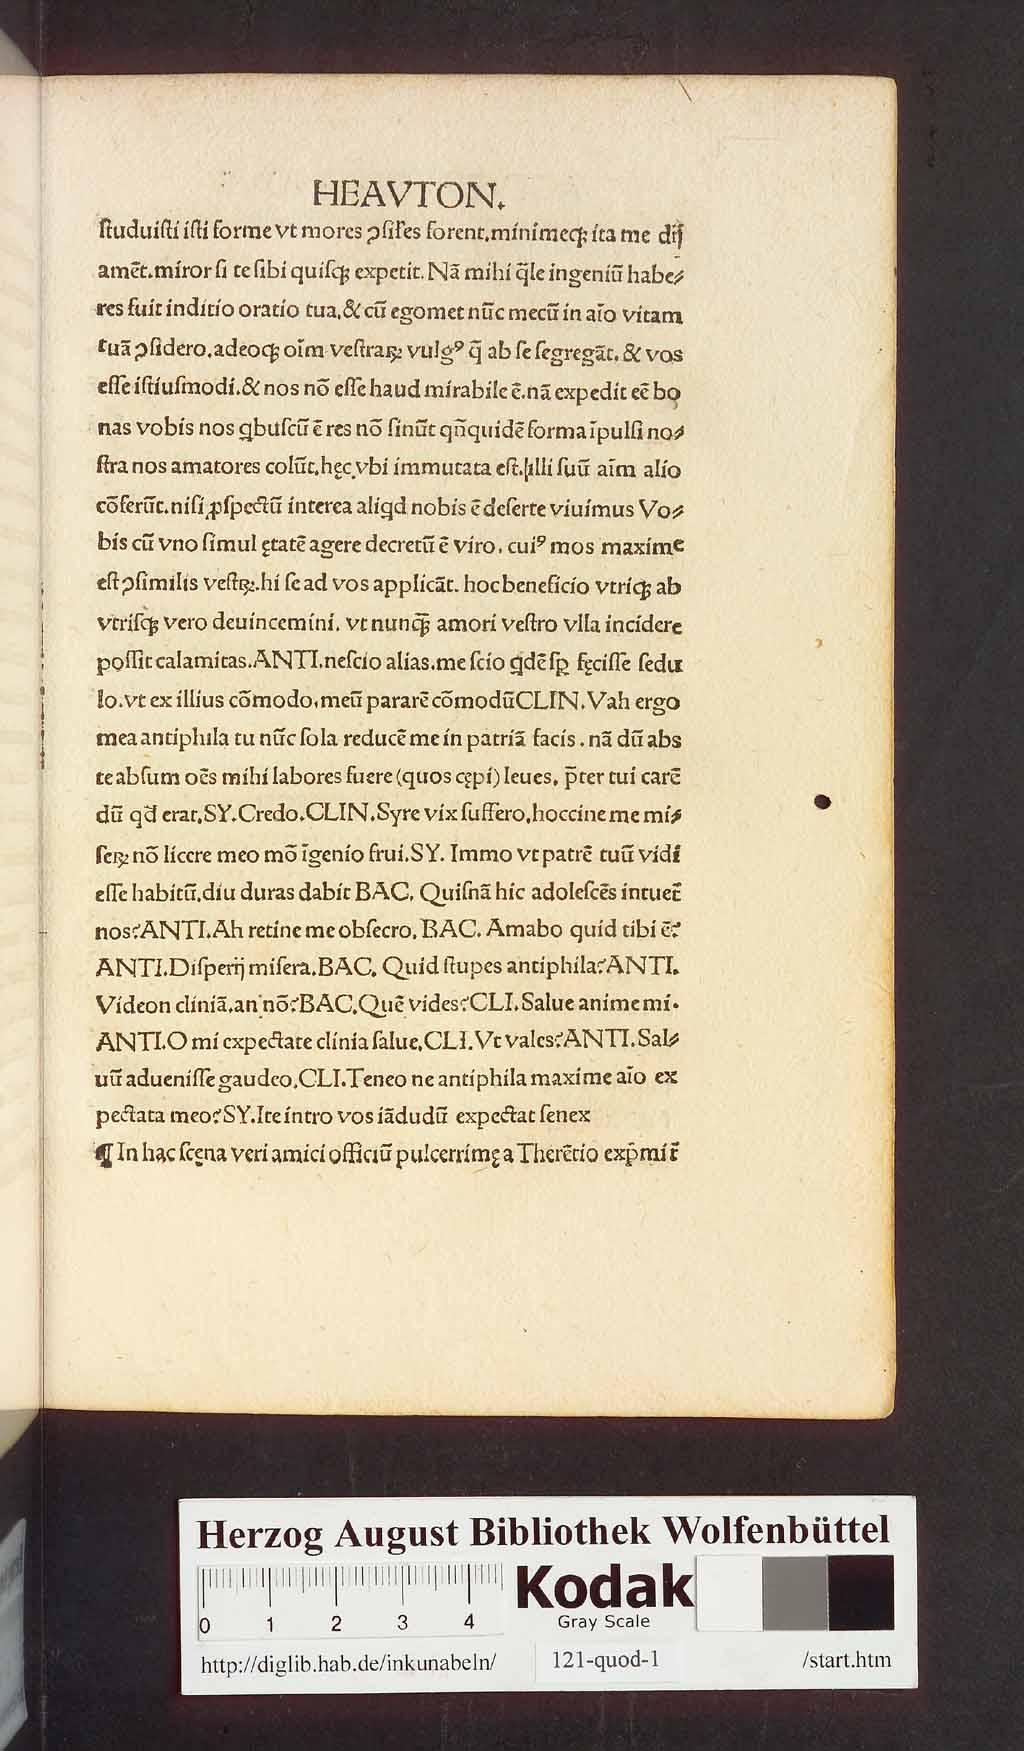 HEAVTON.
ſtuduiſti iſti forme vt mores ꝯſiłes forent.minimeqꝫ ita me dij
amēt.miror ſi te ſibi quiſqꝫ expetit. Nā mihi q̄le ingeniū habe⸗
res fuit inditio oratio tua.& cū egomet nūc mecū in aīo vitam
tuā ꝯſidero.adeoqꝫ oīm veſtraꝝ vulgꝰ q̄ ab ſe ſegregāt. & vos
eſſe iſtiuſmodi.& nos nō eſſe haud mirabile ē.nā expedit eē bo
nas vobis nos qbuſcū ē res nō ſinūt qn̄quidē forma īpulſi no⸗
ſtra nos amatores colūt.hęc vbi immutata eſt.illi ſuū aīm alio
cōferūt.niſi ꝓſpectū interea aliqd nobis ē deſerte viuimus Vo⸗
bis cū vno ſimul ętatē agere decretū ē viro. cuiꝰ mos maxime
eſt ꝯſimilis veſtꝝ.hi ſe ad vos applicāt. hoc beneficio vtriqꝫ ab
vtriſqꝫ vero deuincemini. vt nunqꝫ̄ amori veſtro vlla incidere
poſſit calamitas.ANTI.neſcio alias.me ſcio qdē ſꝑ fęciſſe ſedu
lo.vt ex illius cōmodo.meū pararē cōmodūCLIN.Vah ergo
mea antiphila tu nūc ſola reducē me in patriā facis . nā dū abs
te abſum oēs mihi labores fuere (quos cępi) leues. p̄ter tui carē
dū qd̄ erat.SY.Credo.CLIN.Syre vix ſuffero.hoccine me mi⸗
ſeꝝ nō licere meo mō īgenio frui.SY. Immo vt patrē tuū vidi
eſſe habitū.diu duras dabit BAC. Quiſnā hic adoleſcēs intuet̄
nos?ANTI.Ah retine me obſecro. BAC. Amabo quid tibi ē?
ANTI.Diſperij miſera.BAC. Quid ſtupes antiphila?ANTI.
Videon cliniā.an nō?BAC.Quē vides?CLI.Salue anime mi.
ANTI.O mi expectate clinia ſalue.CLI.Vt vales?ANTI.Sal⸗
uū adueniſſe gaudeo.CLI.Teneo ne antiphila maxime aīo ex
pectata meo?SY.Ite intro vos iādudū expectat ſenex
¶ In hac ſcęna veri amici officiū pulcerrimę a Therētio exp̄mit̄
Herzog August Bibliothek Wolfenbüttel
0 1 2 3 4
Kodak
Gray Scale
http://diglib.hab.de/inkunabeln/ 121-quod-1 /start.htm